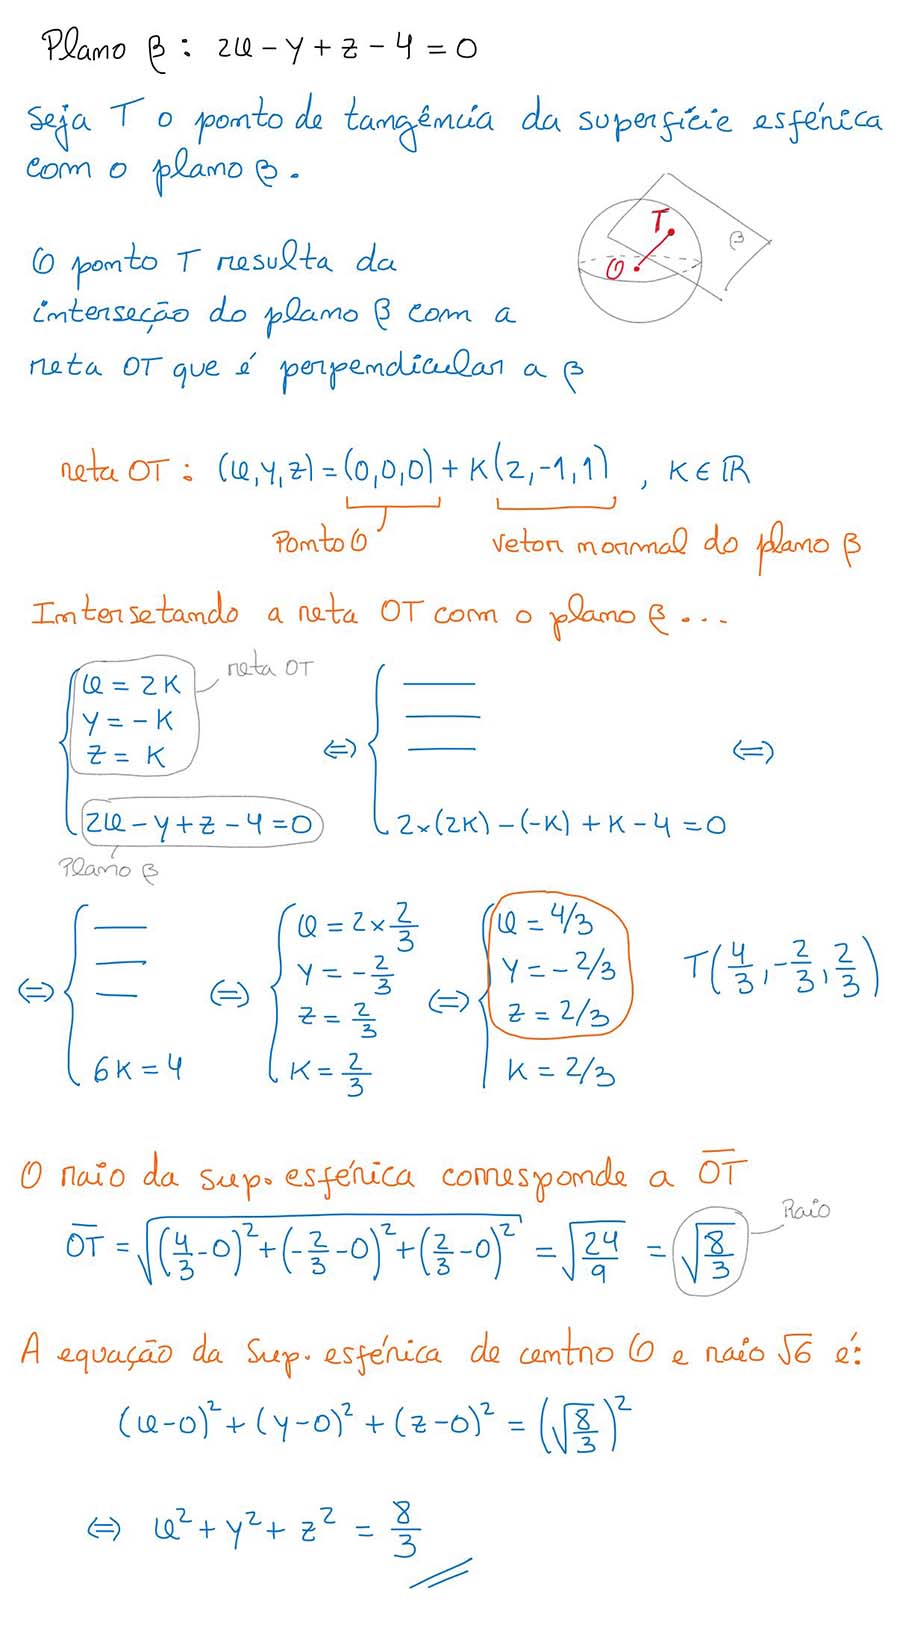 Plano β: 2x - y + z - 4 = 0
Seja T o ponto de tangência da superfície esférica
com o plano β.
T
β
O
O ponto T resulta da
interseção do plano β com a
reta OT que é perpendicular a β
reta OT: (x,y,z) = (0,0,0) + K(2,-1,1) , K ∈ ℝ
Ponto O
vetor normal do plano β
Intersetando a reta OT com o plano β...
reta OT
{ x = 2K
y = -K
z = K
2x - y + z - 4 = 0
Plano β
⇔ { ——
——
——
2×(2K) - (-K) + K - 4 = 0
⇔
⇔ { ——
——
——
6K = 4
⇔ { x = 2 × 2/3
y = -2/3
z = 2/3
K = 2/3
⇔ { x = 4/3
y = -2/3
z = 2/3
K = 2/3
T(4/3, -2/3, 2/3)
O raio da sup. esférica corresponde a O̅T̅
O̅T̅ = √((4/3 - 0)² + (-2/3 - 0)² + (2/3 - 0)²) = √(24/9) = √(8/3)
Raio
A equação da sup. esférica de centro O e raio √6 é:
(x-0)² + (y-0)² + (z-0)² = (√(8/3))²
⇔ x² + y² + z² = 8/3